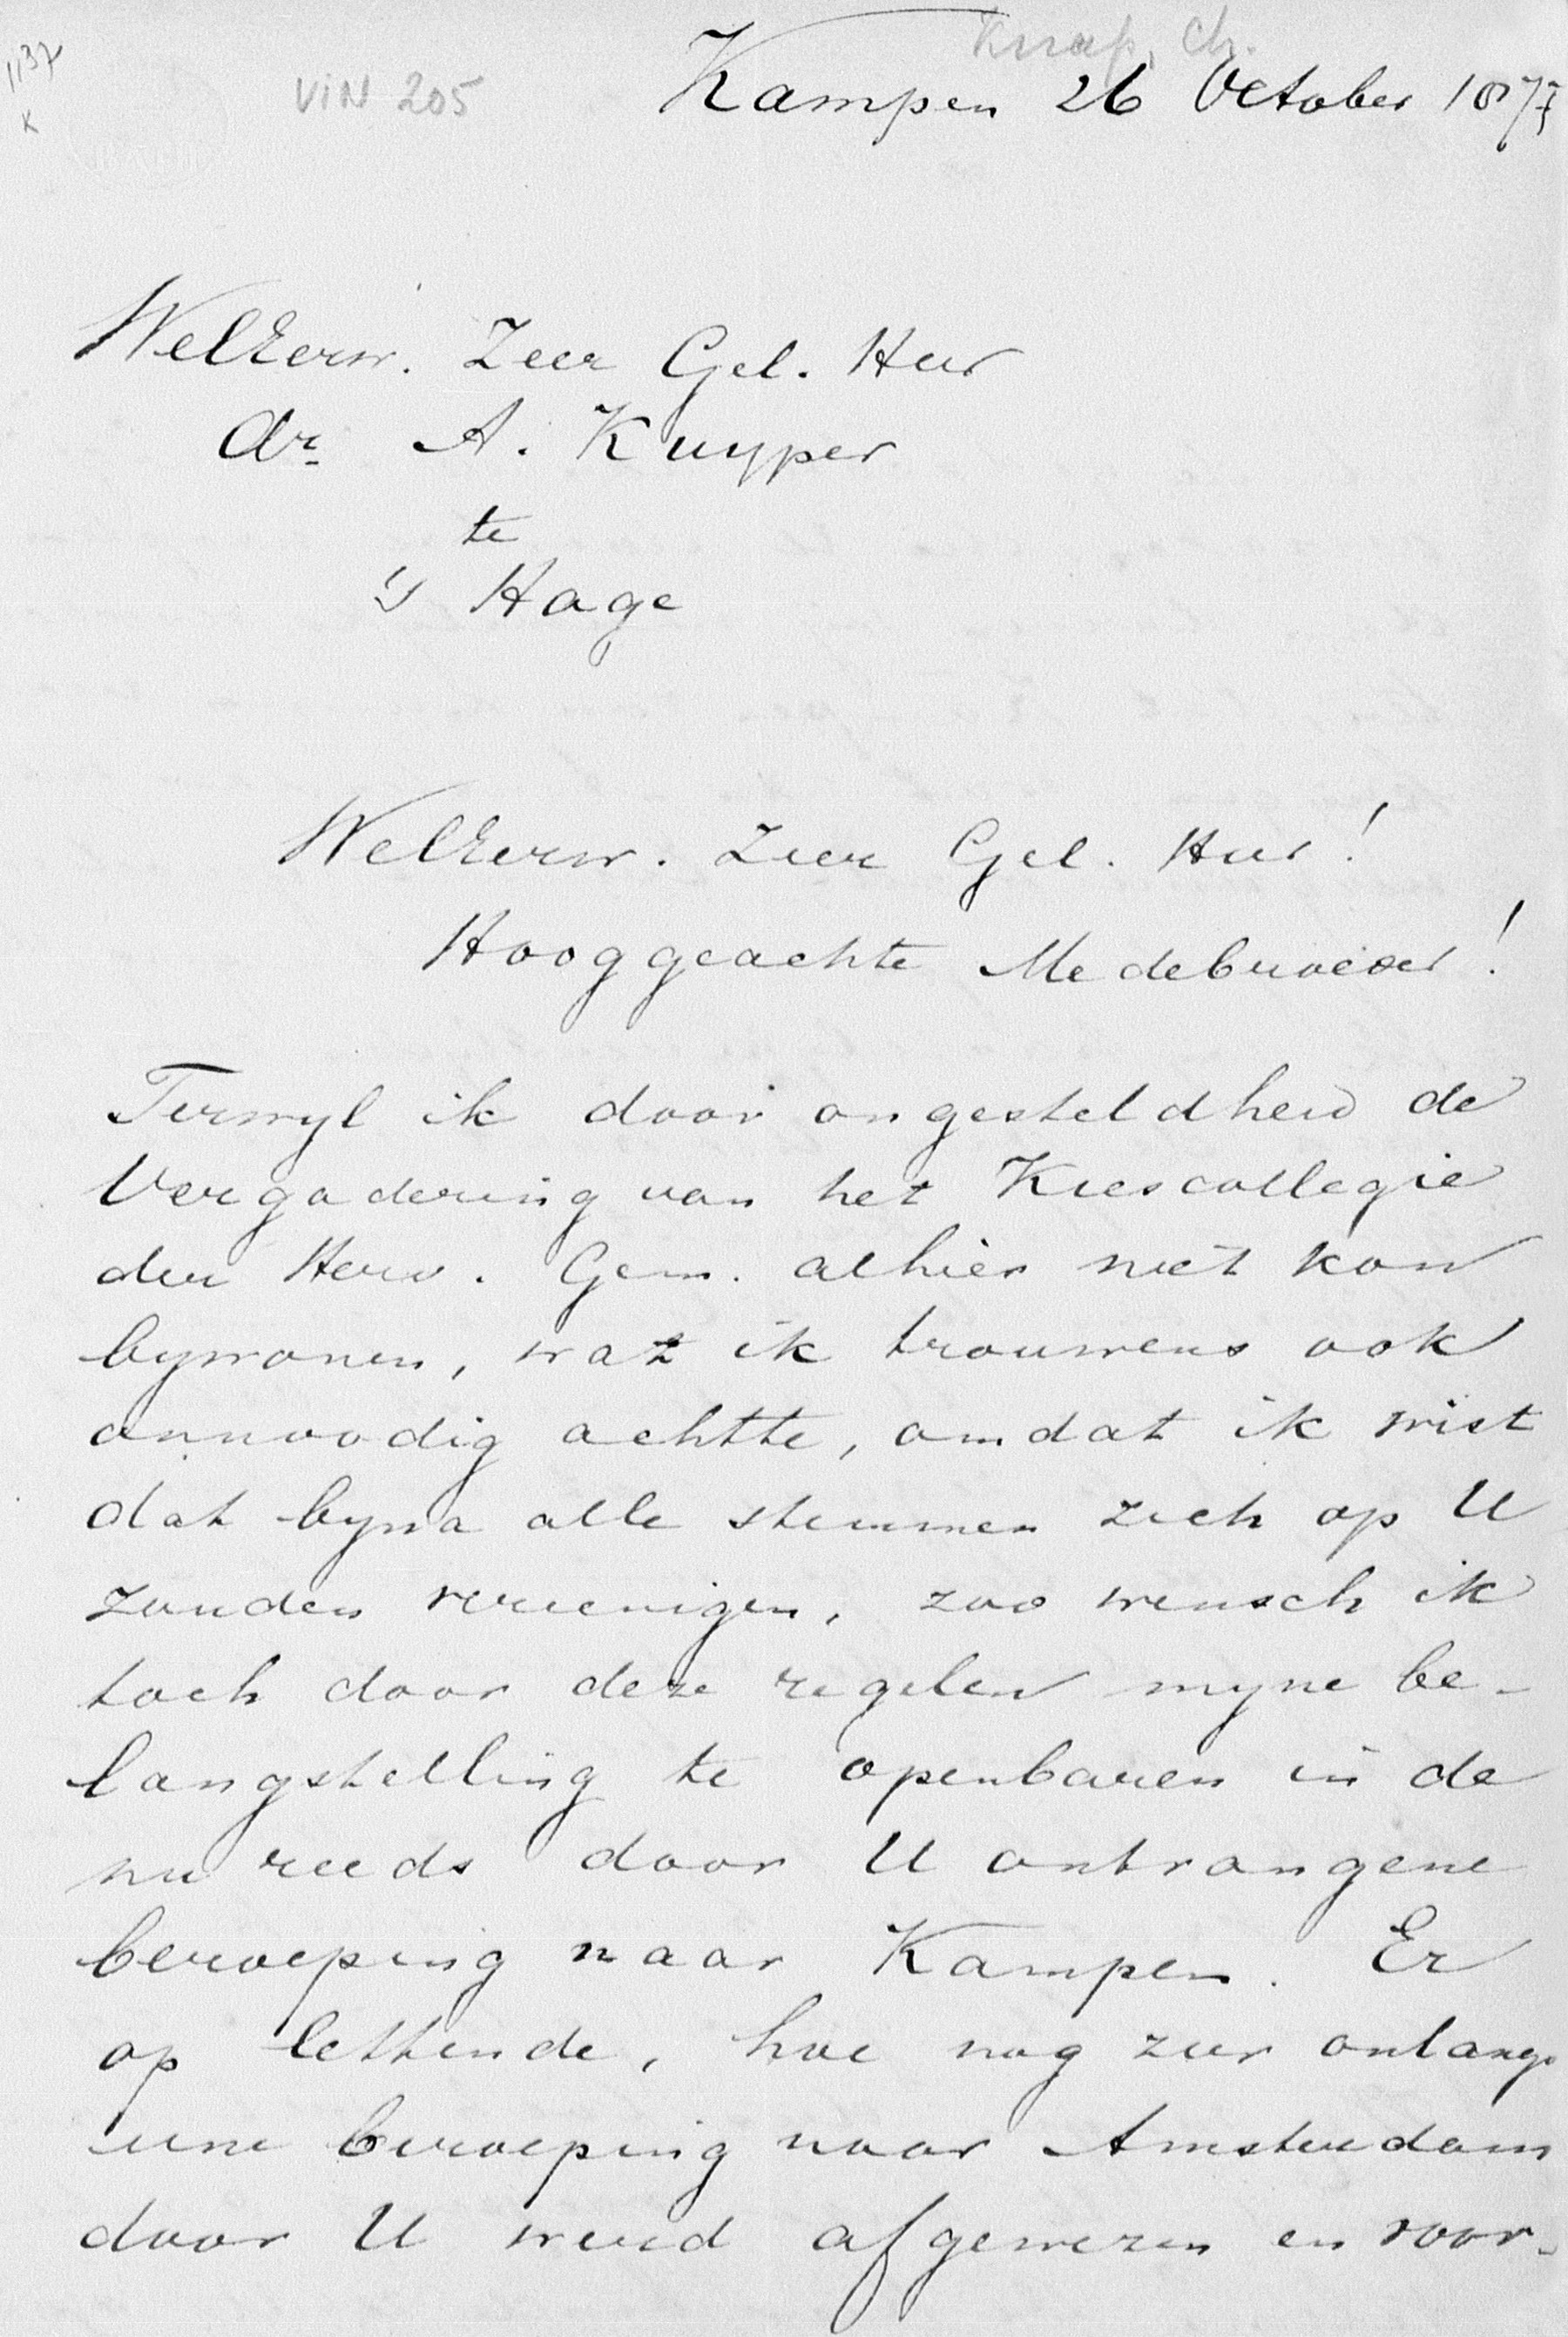 1137
K
VIN 205
Knap, Ch.
Kampen 26 October 1877
WelEerw. Zeer Gel. Heer
dr. A. Kuyper
te
's Hage
WelEerw. Zeer Gel. Heer!
Hooggeachte Medebroeder!
Terwyl ik door ongesteldheid de
Vergadering van het Kiescollegie
der Herv. Gem. alhier niet kon
bywonen, wat ik trouwens ook
onnoodig achtte, omdat ik wist
dat byna alle stemmen zich op U
zouden vereenigen, zoo wensch ik
toch door deze regelen myne be-
langstelling te openbaren in de
nu reeds door U ontvangene
beroeping naar Kampen. Er
op lettende, hoe nog zeer onlangs
eene beroeping naar Amsterdam
door U werd afgewezen en voor-